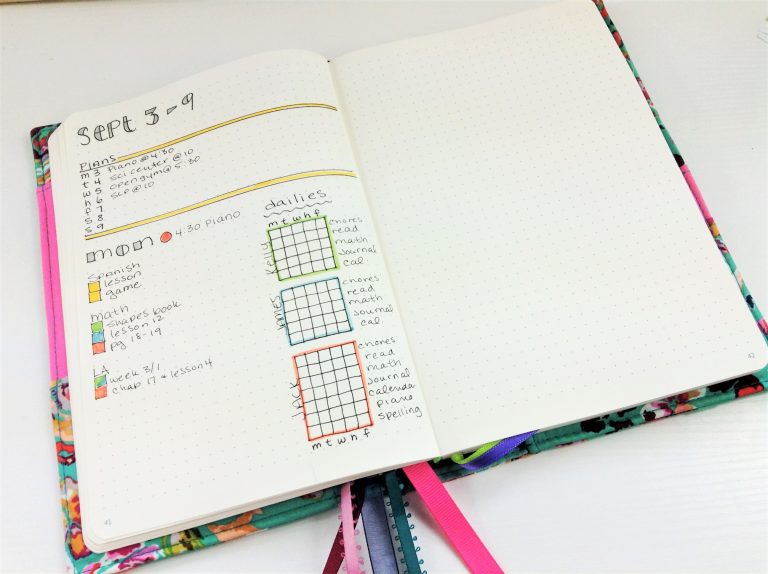 Sept 3-9
Plans
m 3 piano @ 4:30
t 4 sci center @ 10
w 5 open gym @ 5:30
h 6 SLP @ 10
f 7
s 8
s 9
mon 4:30 piano
Spanish
lesson
game
math
shapes book
lesson 12
pg 18-19
LA
week 3/1
chap 17 & lesson 4
dailies
m t w h f
Kelly
chores
read
math
journal
cal.
James
chores
read
math
journal
cal.
Jack
chores
read
math
journal
calenda
piano
spelling
m t w h f
41
42